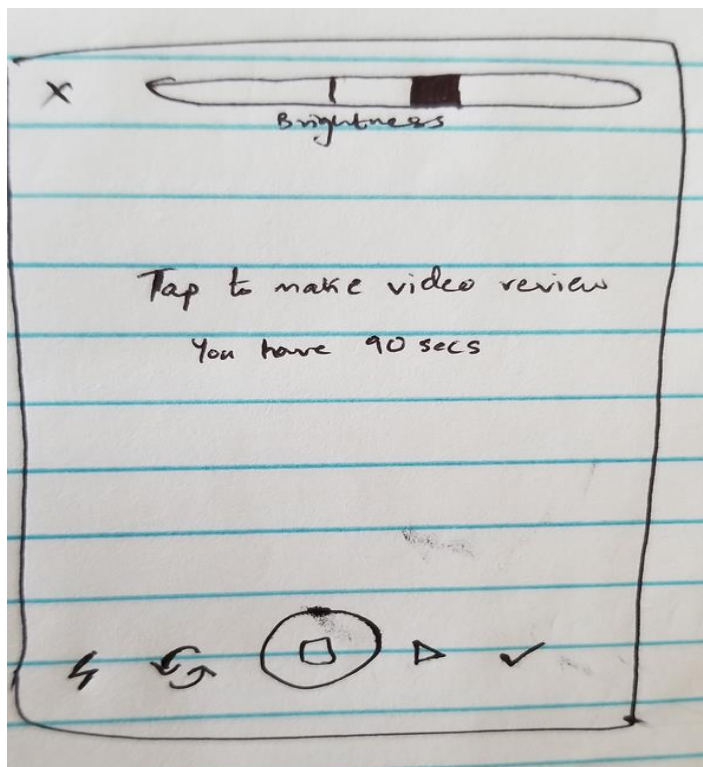 X
Brightness
Tap to make video review
You have 90 secs